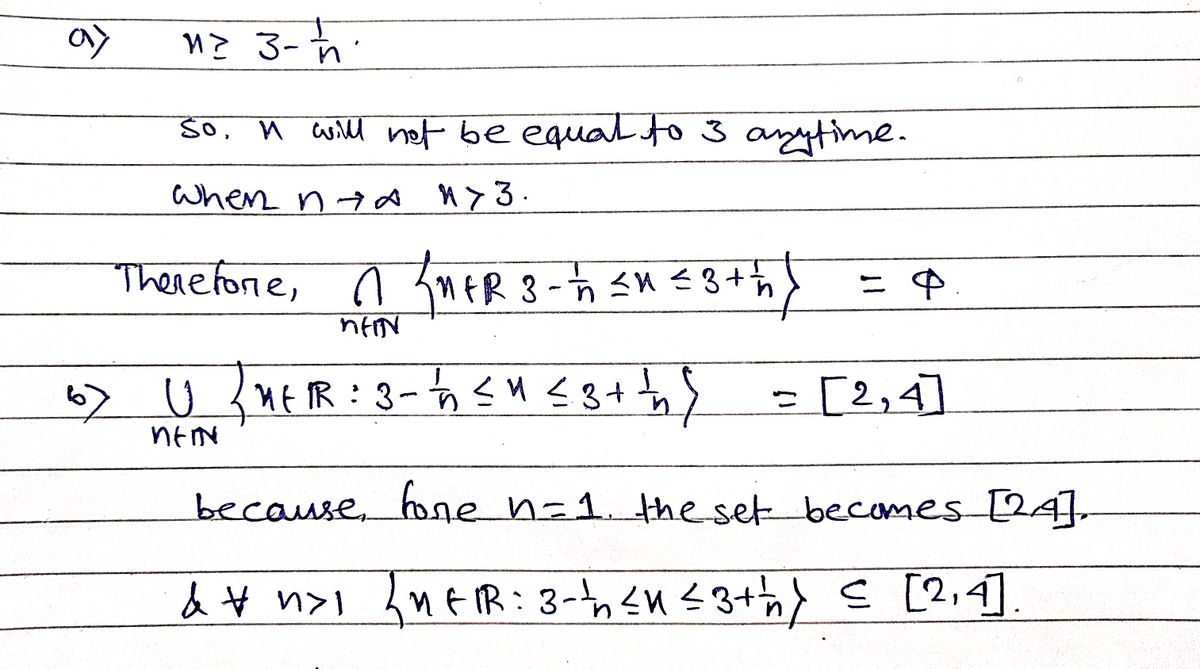 a) x ≥ 3 - 1/n.
so, x will not be equal to 3 anytime.
when n → ∞ x > 3.
Therefore, ∩ {x ∈ ℝ 3 - 1/n ≤ x ≤ 3 + 1/n} = φ.
n∈ℕ
b) ∪ {x ∈ ℝ : 3 - 1/n ≤ x ≤ 3 + 1/n} = [2, 4]
n∈ℕ
because, for n = 1. the set becomes [2,4].
& ∀ n>1 {x ∈ ℝ : 3 - 1/n ≤ x ≤ 3 + 1/n} ⊆ [2,4].